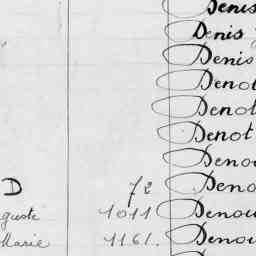 Denis
Denis
Denis
Denot
Denot
Denot
Denou
D 72 Deno
guste 1011 Denou
Marie 1161. Denou